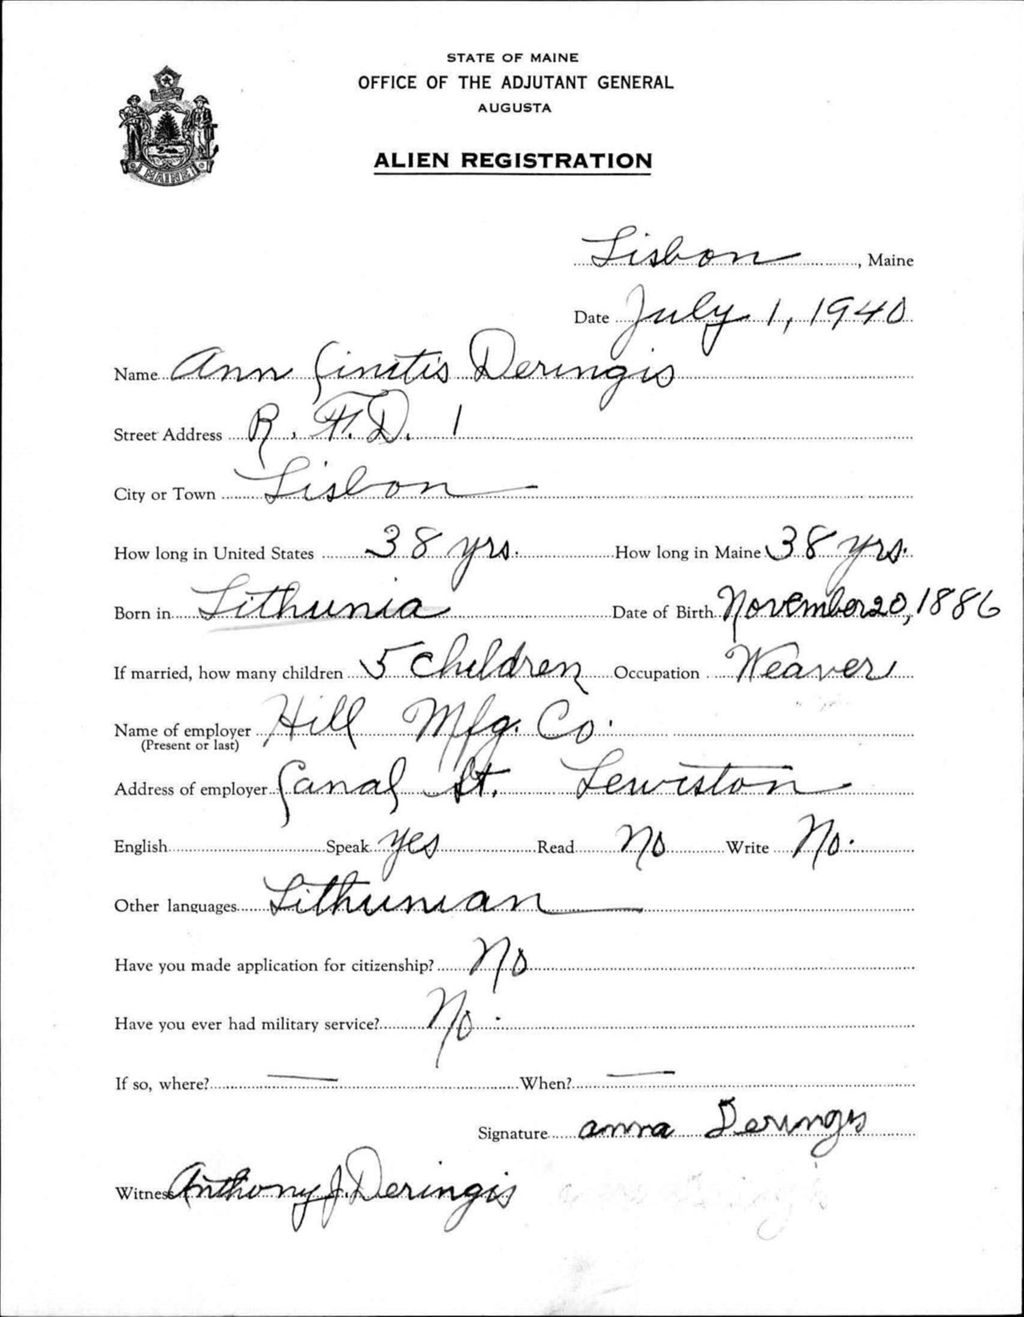 STATE OF MAINE
OFFICE OF THE ADJUTANT GENERAL
AUGUSTA
ALIEN REGISTRATION
MAINE
Lisbon, Maine
Date July 1, 1940
Name Ann Deringis
Street Address R. F. D. 1
City or Town Lisbon
How long in United States 38 yrs. How long in Maine 38 yrs.
Born in Lithunia Date of Birth November 20, 1886
If married, how many children 5 children Occupation Weaver
Name of employer Hill Mfg. Co.
(Present or last)
Address of employer Canal St. Lewiston
English Speak yes Read No Write No.
Other languages Lithunian
Have you made application for citizenship? No
Have you ever had military service? No.
If so, where? — When? —
Signature anna Deringis
Witness Anthony J. Deringis